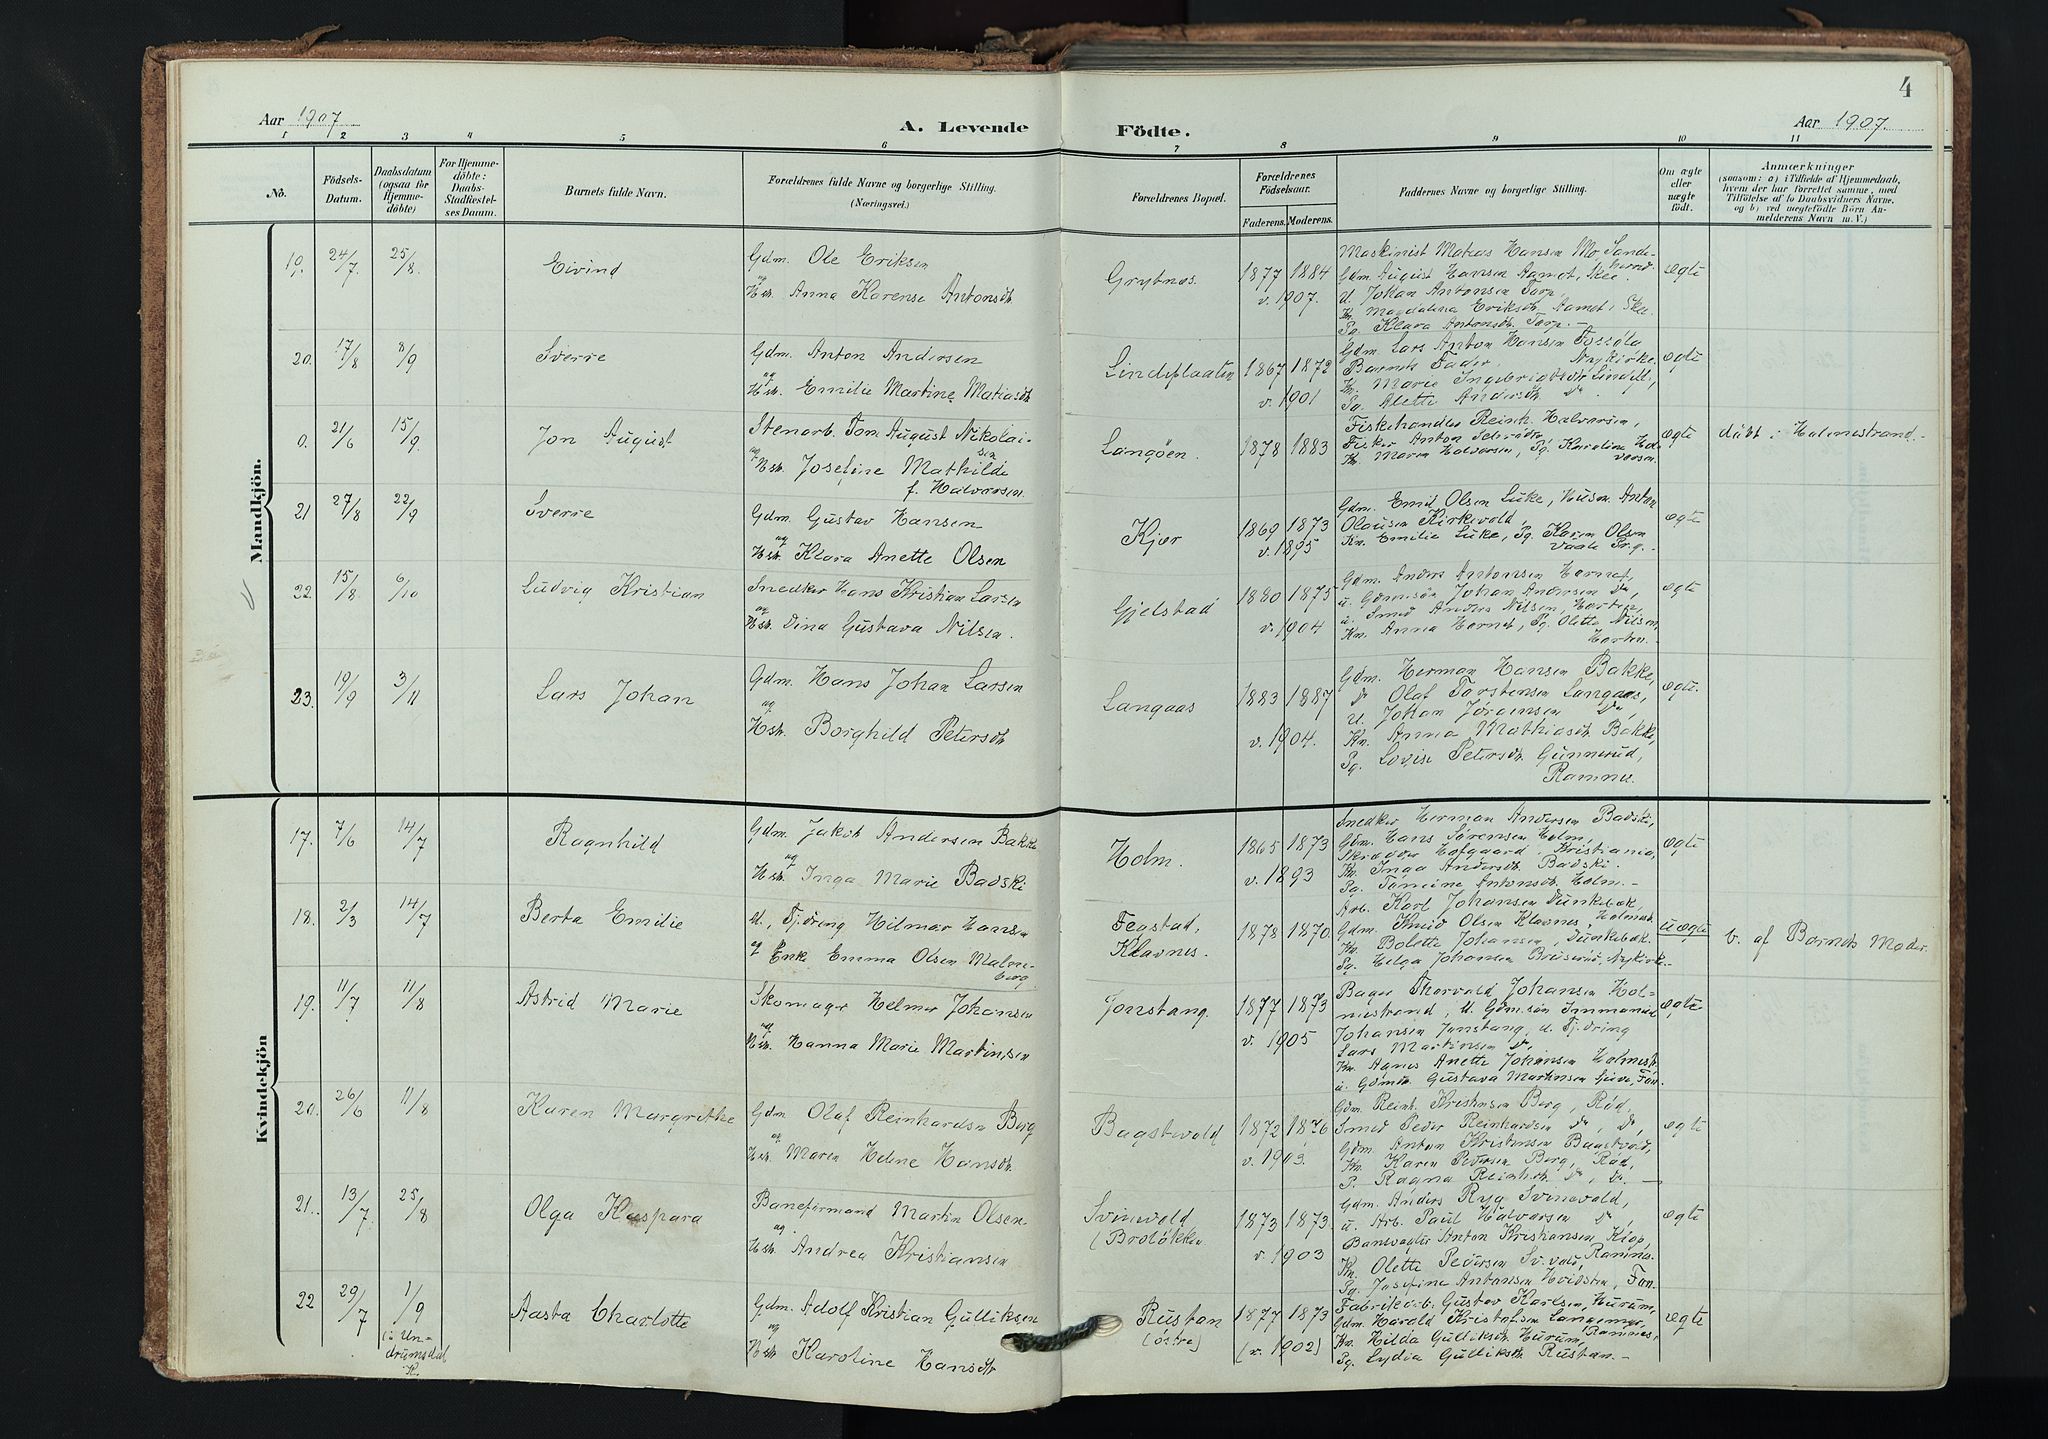 4
Aar 1907
A. Levende
Födte.
Aar 1907.
1 2 3 4 5 6 7 8 9 10 11
No.
Födsels-
Datum.
Daabsdatum
(ogsaa for
Hjemme-
döbte)
For Hjemme-
döbte:
Daabs-
Stadfæstel-
ses Datum.
Barnets fulde Navn.
Forældrenes fulde Navne og borgerlige Stilling.
(Næringsvei.)
Forældrenes Bopæl.
Forældrenes
Födselsaar.
Faderens. Moderens.
Faddernes Navne og borgerlige Stilling.
Om ægte
eller
uægte
födt.
Anmærkninger
(saasom: a) i Tilfælde af Hjemmedaab,
hvem der har forrettet samme, med
Tilföielse af to Daabsvidners Navne,
og b) ved uægtefödte Börn An-
melderens Navn m. V.)
Mandkjön.
19. 24/7. 25/8. Eivind
Gdm. Ole Eriksen
og
Hst. Anna Karense Antonsdt.
Grytnes.
1877 1884
v. 1907.
Maskinist Matias Hansen Mo, Sande-
Gdm. August Hansen Aamot, Skee
U. Johan Antonsen Torp,
Kn. Magdalena Eriksdt. Aamot, Skee
Pg. Klara Antonsdt. Torp. —
ægte
20. 17/8 8/9 Sverre
Gdm. Anton Andersen
og
Hst. Emilie Martine Matiasdt.
Lindeplaaten
1867 1872
v. 1901
Gdm. Lars Anton Hansen
Barnets Fader Nykirke.
Kn. Marie Ingebrigtsdt.
Pg. Alette Andersdt. Do
ægte
0. 21/6 15/9. Jon August
Stenarb. Tom August Nikolai-
sen
og Hst. Josefine Mathilde
f. Halvorsen.
Langöen.
1878 1883
Fiskehandler Reinh. Halvorsen,
Fisker Anton
Kn. Maren Halvorsen, Pg. Karoline Hal-
vorsen
ægte
döbt i Holmestrand.
21 27/8 22/9 Sverre
Gdm. Gustav Hansen
og
Hst. Klara Anette Olsen
Kjær
1869 1873
v. 1895
Gdm. Emil Olsen Luke, Husm. Anton
Olausen Kirkevold,
Kn. Emilie Luke, Pg. Karen Olsen
Vaale Prg.
ægte
22. 15/8 6/10 Ludvig Kristian
Snedker Hans Kristian Larsen
og
Hst. Dina Gustava Nilsen.
Gjelstad
1880 1875
v. 1904
Gdm. Anders Antonsen Hornet,
u. Gdmssön Johan Andersen Do,
u. Smed Anders Nilsen, Horten,
Kn. Anna Hornet, Pg. Olette Nilsen
Horten. —
ægte
23. 19/9 3/11 Lars Johan
Gdm. Hans Johan Larsen
og
Hst. Borghild Petersdt.
Langaas
1883 1887
v. 1904.
Gdm. Herman Hansen Bakke,
Do Olaf Torstensen Langaas,
U. Johan Jörgensen Do,
Kn. Anna Mathiasdt. Bakke,
Pg. Lovise Petersdt. Gunnerud,
Ramnes.
ægte.
Kvindekjön
17. 7/6 14/7 Ragnhild
Gdm. Jakob Andersen Bakke
og
Hst. Inga Marie Badski
Holm.
1865 1873
v. 1893
Snedker Herman Andersen Badski,
Gdm. Hans Sörensen Holm,
Skrædder Hofgaard, Kristiania,
Kn. Inga Andersdt. Badski.
Pg. Tomine Antonsdt. Holm. —
ægte
18. 2/3 14/7 Berta Emilie
U., Tjdreng Hilmar Hansen
og Enke Emma Olsen Malme-
berg
Fegstad,
Klavnes.
1878 1870.
Arb. Karl Johansen Dunkebæk,
Gdm. Knud Olsen Klavnes, Holmest.
Kn. Bolette Johansen, Dunkebæk.
Pg. Helga Johansen Bruserød, Nykirke.
uægte
b. af Barnets Moder.
19. 11/7 11/8 Astrid Marie
Skomager Helmer Johansen
og
Hst. Hanna Marie Martinsen
Jonstang.
1877 1873
v. 1905
Bager Thorvald Johansen Hol-
mestrand, U. Gdmssön Immanuel
Johansen Jonstang, u. Tjdreng
Lars Martinsen Do,
Kn. Agnes Anette Johansen Holmestr.
u. Gustava Martinsen
ægte
20. 26/6 11/8 Karen Margrethe
Gdm Olaf Reinhardsen Berg
og
Hst. Maren Helene Hansdt.
Bagstevold
1872 1876
v. 1903.
Gdm. Reinh. Kristensen Berg, Röd,
Smed Peder Reinhardsen Do, Do,
Gdm. Anton Kristensen
Kn. Karen Pedersen Berg, Röd,
P. Ragna Reinhdt. Do, Do. —
ægte
21. 13/7. 25/8 Olga Kaspara
Baneformand Martin Olsen
og
Hst. Andrea Kristiansen
Svinevold
(Brolökken
1873 1873.
v. 1903
Gdm. Anders Ryg Svinevold,
u. Arb. Paul Halvorsen Do,
Banevogter Anton Kristiansen Kiop,
Ramnes.
Kn. Olette Pedersen Sv.vold,
Pg. Josefine Antonsen Hvidsten, Fon.
ægte
22 29/7 1/9 Aasta Charlotte
(i Un-
drumsdal
K.
Gdm. Adolf Kristian Gulliksen
og
Hst. Karoline Hansdtr
Rustan
(östre)
1877 1873
(v. 1902)
Fabrikarb. Gustav Karlsen, Hurum,
Gdm. Harald Kristofsen
Ramnes,
Kn. Hilda Gulliksdt. Hurum,
Pg. Lydia Gulliksdt. Rustan. —
ægte